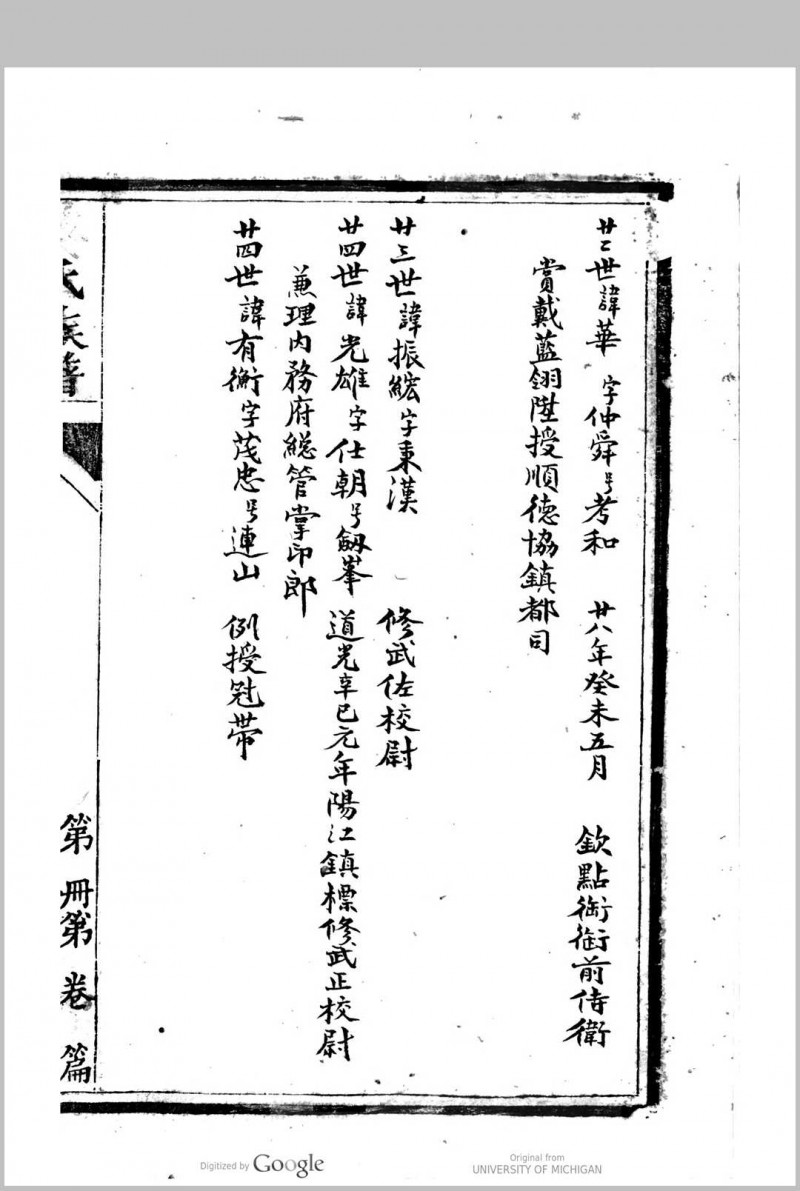 廿二世諱華 字仲舜号考和 廿八年癸未五月 欽點御前侍衛
賞戴藍翎陞授順德協鎮都司
廿三世諱振 字秉漢 修武佐校尉
廿四世諱光雄字仕朝号劔峯 道光辛巳元年陽江鎮標修武正校尉
兼理內務府総管掌印郎
廿四世諱有衡字茂忠号連山 例授冠帶
氏族譜
第 冊第 卷 篇
Digitized by Google
Original from
UNIVERSITY OF MICHIGAN